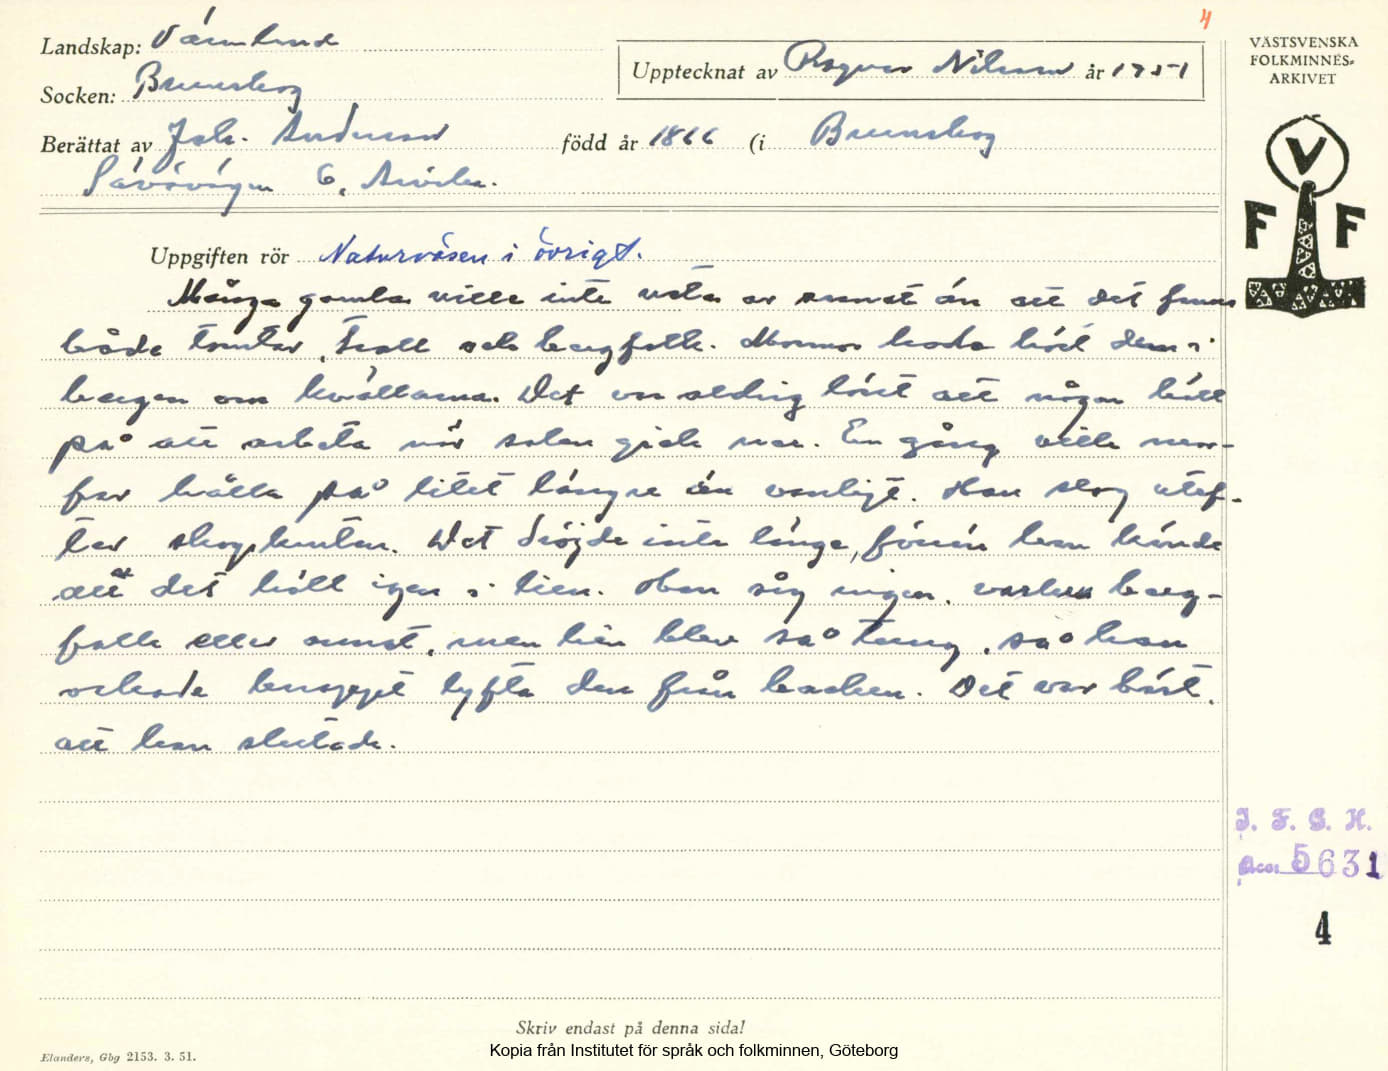 4
Landskap: Värmland
Upptecknat av Ragnar Nilsson år 1951
VÄSTSVENSKA
FOLKMINNES-
ARKIVET
Socken: Brunskog
Berättat av Joh. Anderson född år 1866 (i Brunskog
6, Arvika.
V
F F
Uppgiften rör Naturväsen i övrigt.
Många gamla ville inte veta av annat än att det fanns
både tomtar, troll och bergfolk. Mormor hade hört dem i
bergen om kvällarna. Det var aldrig värt att någon höll
på att arbeta när solen gick ner. En gång ville mor-
far hålla på litet längre än vanligt. Han slog utef-
ter skogskanten. Det dröjde inte länge, förrän han kände
att det höll igen i lien. Han såg ingen, varken berg-
folk eller annat, men lien blev så tung, så han
orkade knappt lyfta den från backen. Det var bäst,
att han slutade.
I. F. G. H.
Acc. 5631
4
Skriv endast på denna sida!
Elanders, Gbg 2153. 3. 51.
Kopia från Institutet för språk och folkminnen, Göteborg